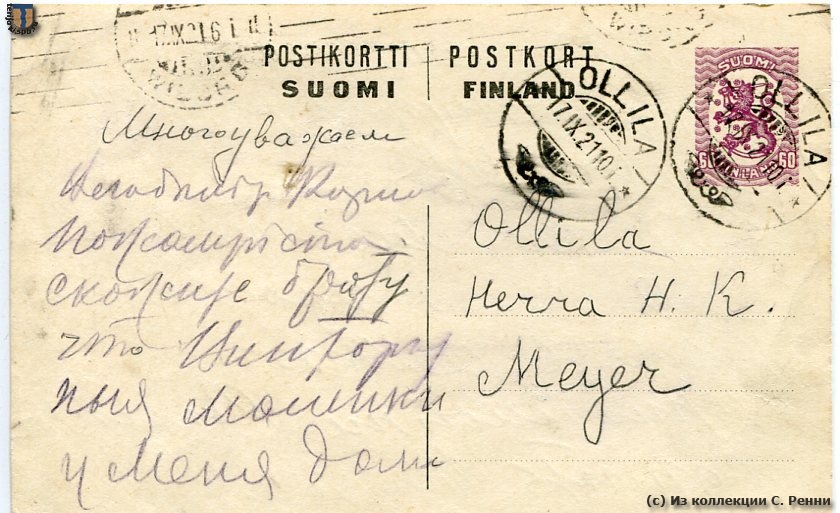 17.IX.21.6
WIBORG
POSTIKORTTI
SUOMI
POSTKORT
FINLAND
OLLILA
17.IX.21.10
SUOMI
60 FINLAND 60
OLLILA
Многоуважаем
пожалуйста
скажите брату
что
ныя машинки
у меня дома
Ollila
Herra H. K.
Meyer
(c) Из коллекции С. Ренни